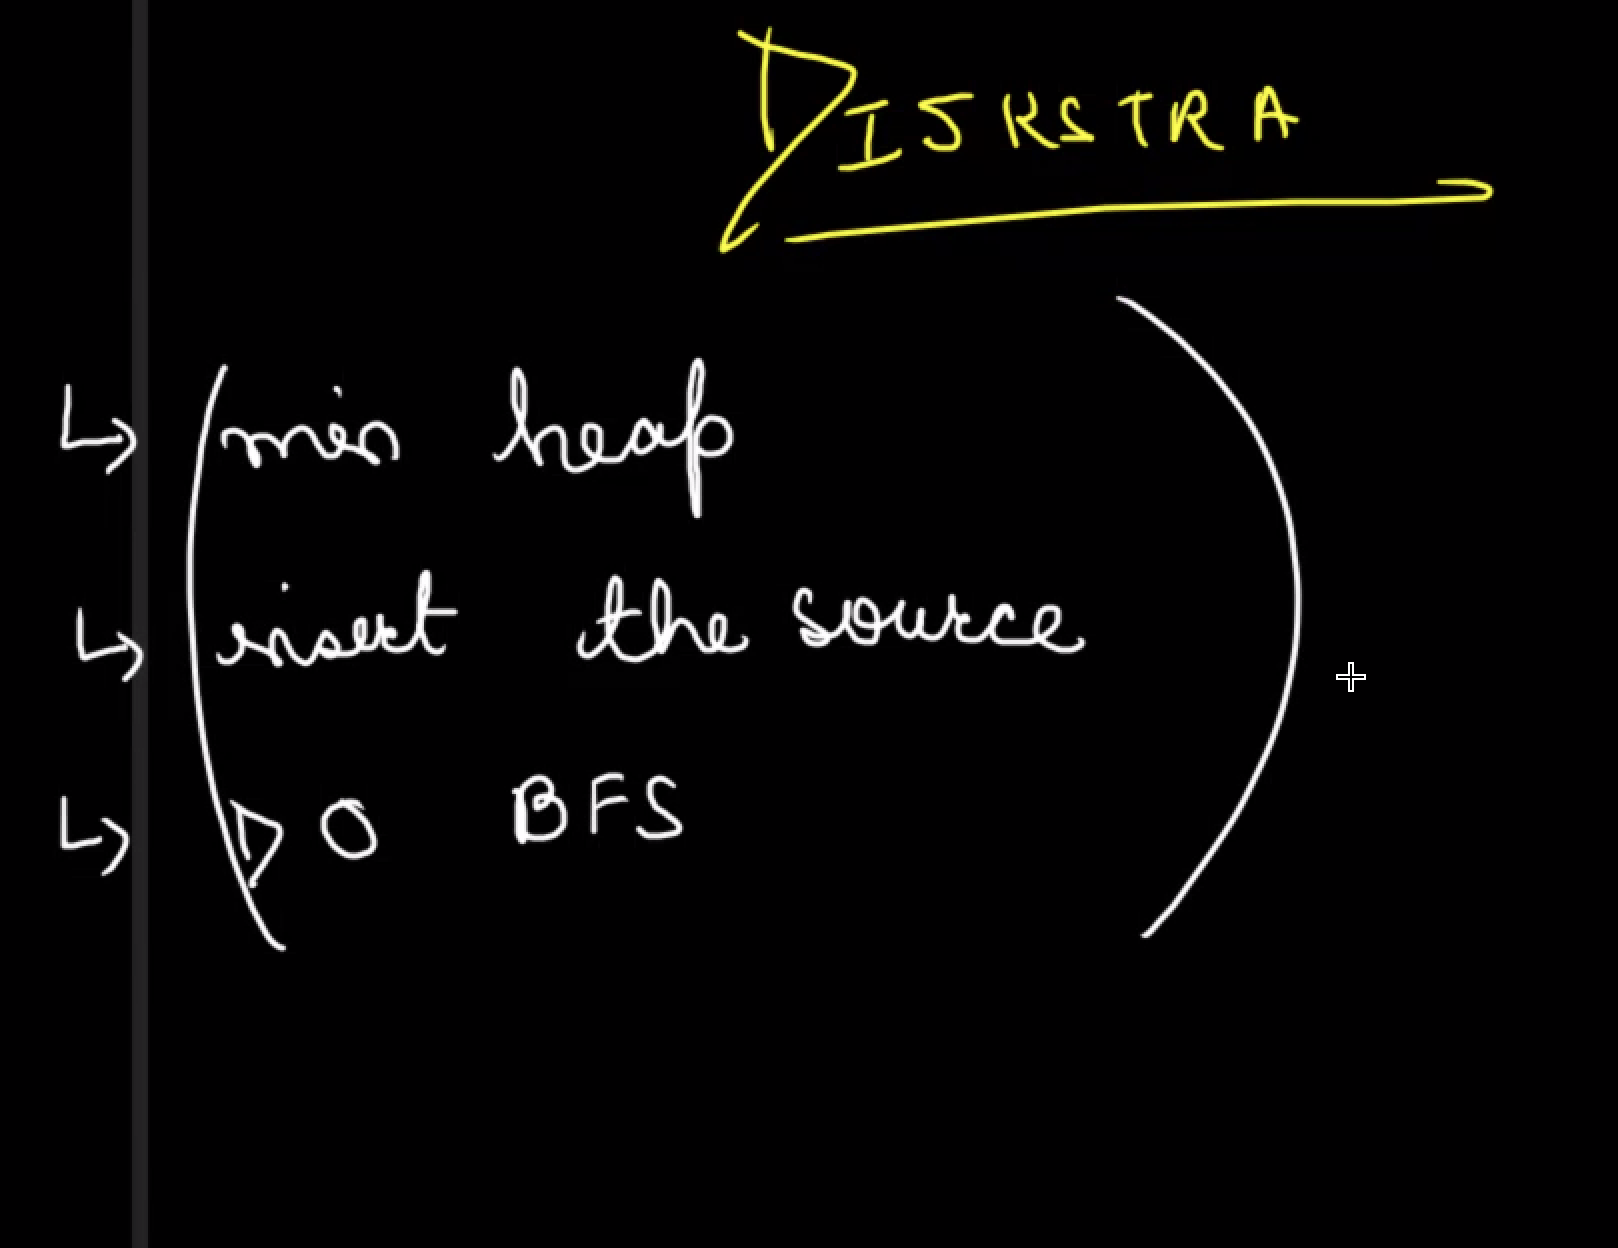 DIJKSTRA
min heap
insert the source
DO BFS